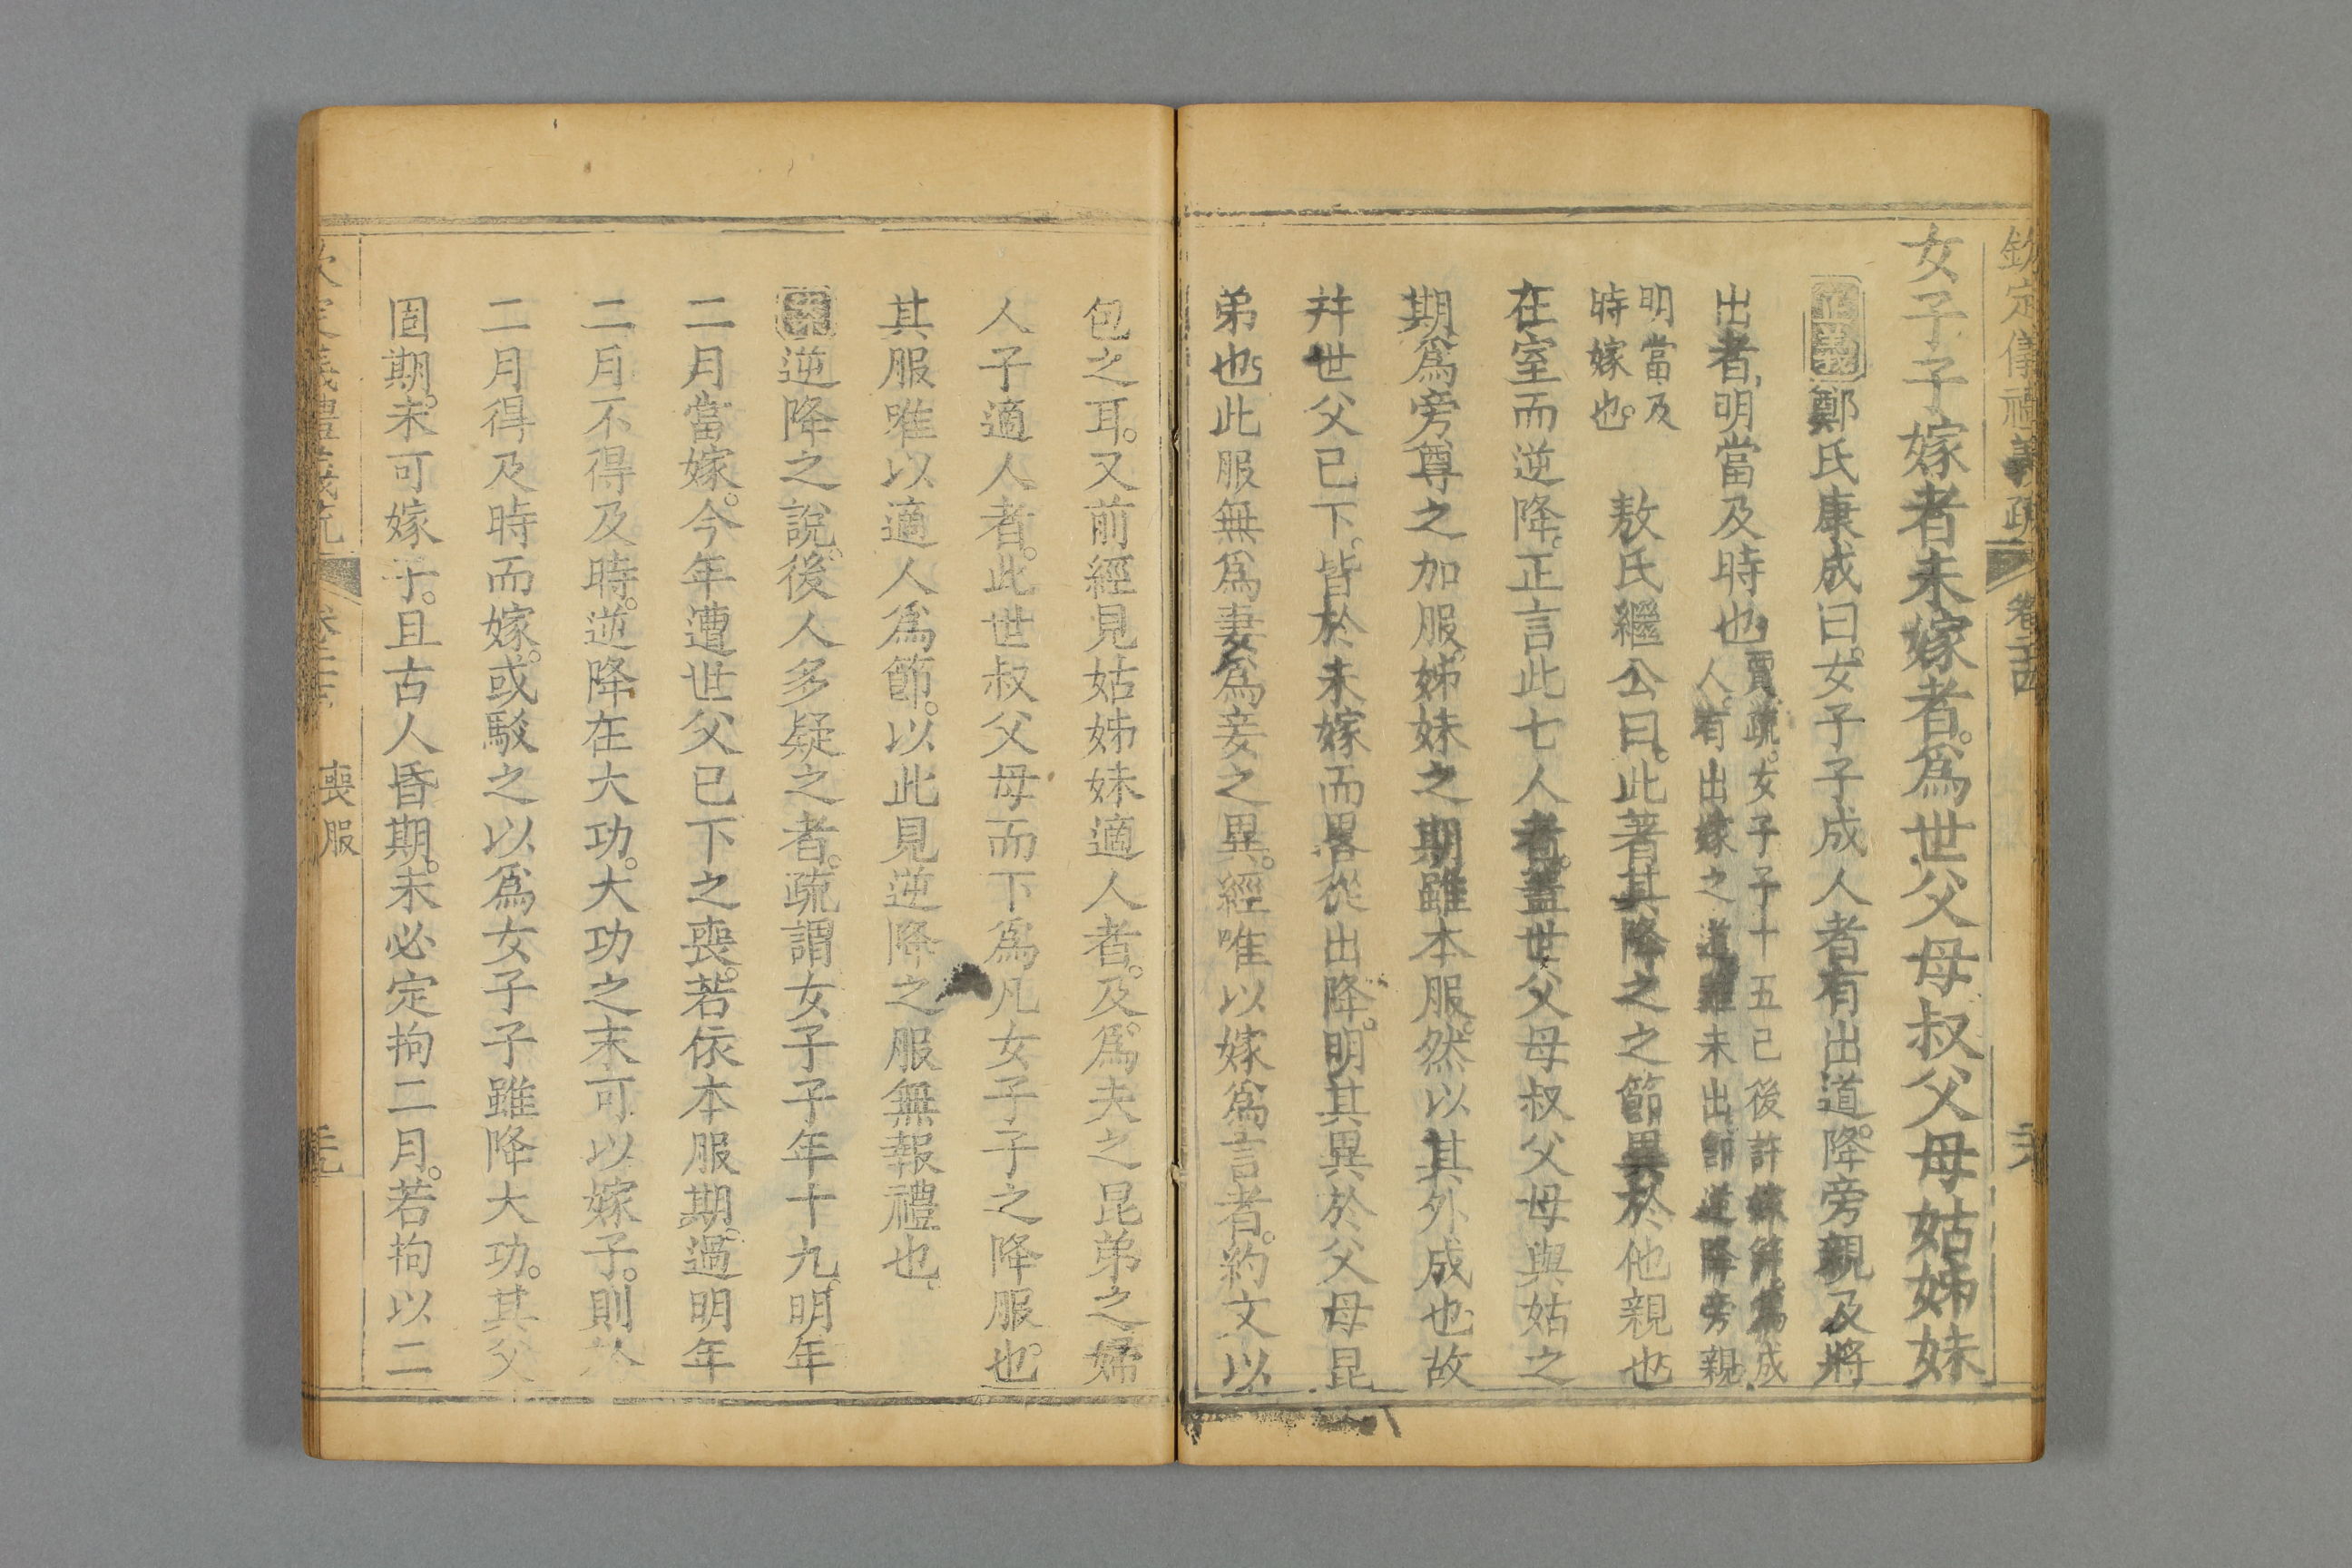 欽定儀禮義疏 卷二十四
女子子嫁者未嫁者。爲世父母叔父母姑姊妹
正義鄭氏康成曰。女子子成人者有出道。降旁親及將
出者,明當及時也賈疏。女子子十五已後許嫁笄爲成
人。有出嫁之道雖未出卽逆降旁親。
明當及
時嫁也。 敖氏繼公曰。此著其降之之節異於他親也
在室而逆降。正言此七人者。蓋世父母叔父母與姑之
期爲旁尊之加服。姊妹之期雖本服。然以其外成也故
幷世父已下。皆於未嫁而畧從出降。明其異於父母昆
弟也此服無爲妻爲妾之異。經唯以嫁爲言者。約文以
包之耳。又前經見姑姊妹適人者。及爲夫之昆弟之婦
人子適人者。此世叔父母而下爲凡女子子之降服也。
其服唯以適人爲節。以此見逆降之服無報禮也
案逆降之說。後人多疑之者。疏謂女子子年十九。明年
二月當嫁。今年遭世父已下之喪。若依本服期。過明年
二月不得及時。逆降在大功。大功之末可以嫁子。則於
二月得及時而嫁。或駁之以爲女子子雖降大功。其父
固期。未可嫁子。且古人昏期。未必定拘二月。若拘以二
欽定儀禮義疏 卷二十四 喪服